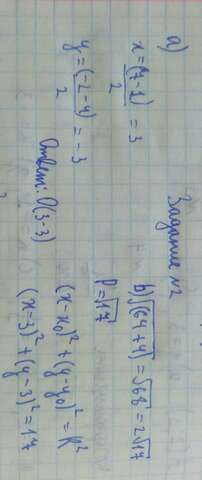 Задание №2
а)
x = (7-1)/2 = 3
y = (-2-4)/2 = -3
Ответ: O(3-3)
b) √(64+4) = √68 = 2√17
R = √17
(x-x₀)²+(y-y₀)² = R²
(x-3)²+(y-3)² = 17